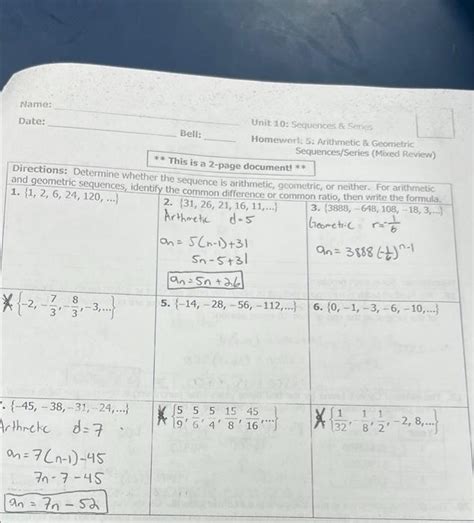 Name:
Date:
Bell:
Unit 10: Sequences & Series
Homework 5: Arithmetic & Geometric
Sequences/Series (Mixed Review)
** This is a 2-page document! **
Directions: Determine whether the sequence is arithmetic, geometric, or neither. For arithmetic
and geometric sequences, identify the common difference or common ratio, then write the formula.
1. {1, 2, 6, 24, 120, ...}
2. {31, 26, 21, 16, 11,...}
Arithmetic d=5
an = 5(n-1)+31
5n-5+31
an=5n+26
3. {3888, -648, 108, -18, 3,...}
Geometric r=-1/6
an= 3888(-1/6)^n-1
{-2, -7/3, -8/3, -3,...}
5. {-14, -28, -56, -112,...}
6. {0, -1, -3, -6, -10,...}
7. {-45, -38, -31, -24,...}
Arithmetic d=7
an=7(n-1)-45
7n-7-45
an=7n-52
{5/9, 5/6, 5/4, 15/8, 45/16,...}
{1/32, -1/8, 1/2, -2, 8,...}